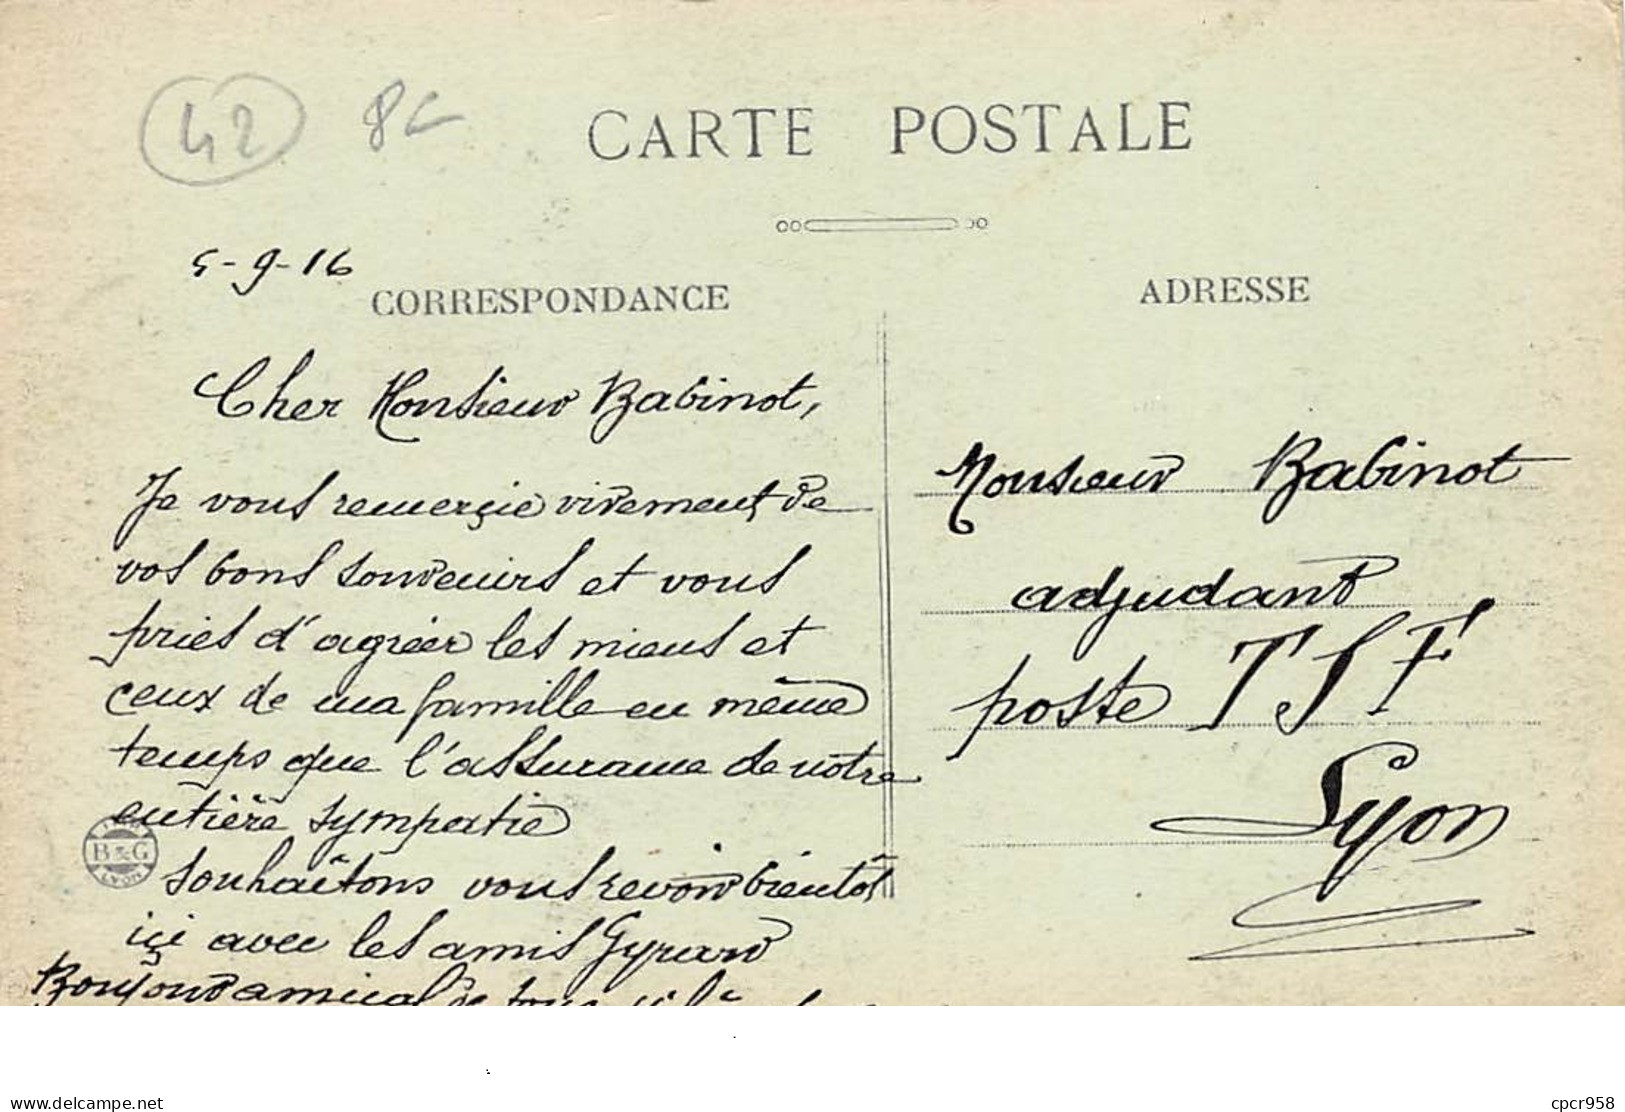 42 8€
CARTE POSTALE
5-9-16
CORRESPONDANCE
Cher Monsieur Babinot,
Je vous remerçie vivement de
vos bons souvenirs et vous
pries d'agréer les miens et
ceux de ma famille en même
temps que l'assurance de notre
entière sympatie
souhaitons vous revoir bientôt
içi avec les amis Gyrard
Bonjour amical de tous
B & G
LYON
ADRESSE
Monsieur Babinot
adjudant
poste TSF
Lyon
www.delcampe.net
cpcr958